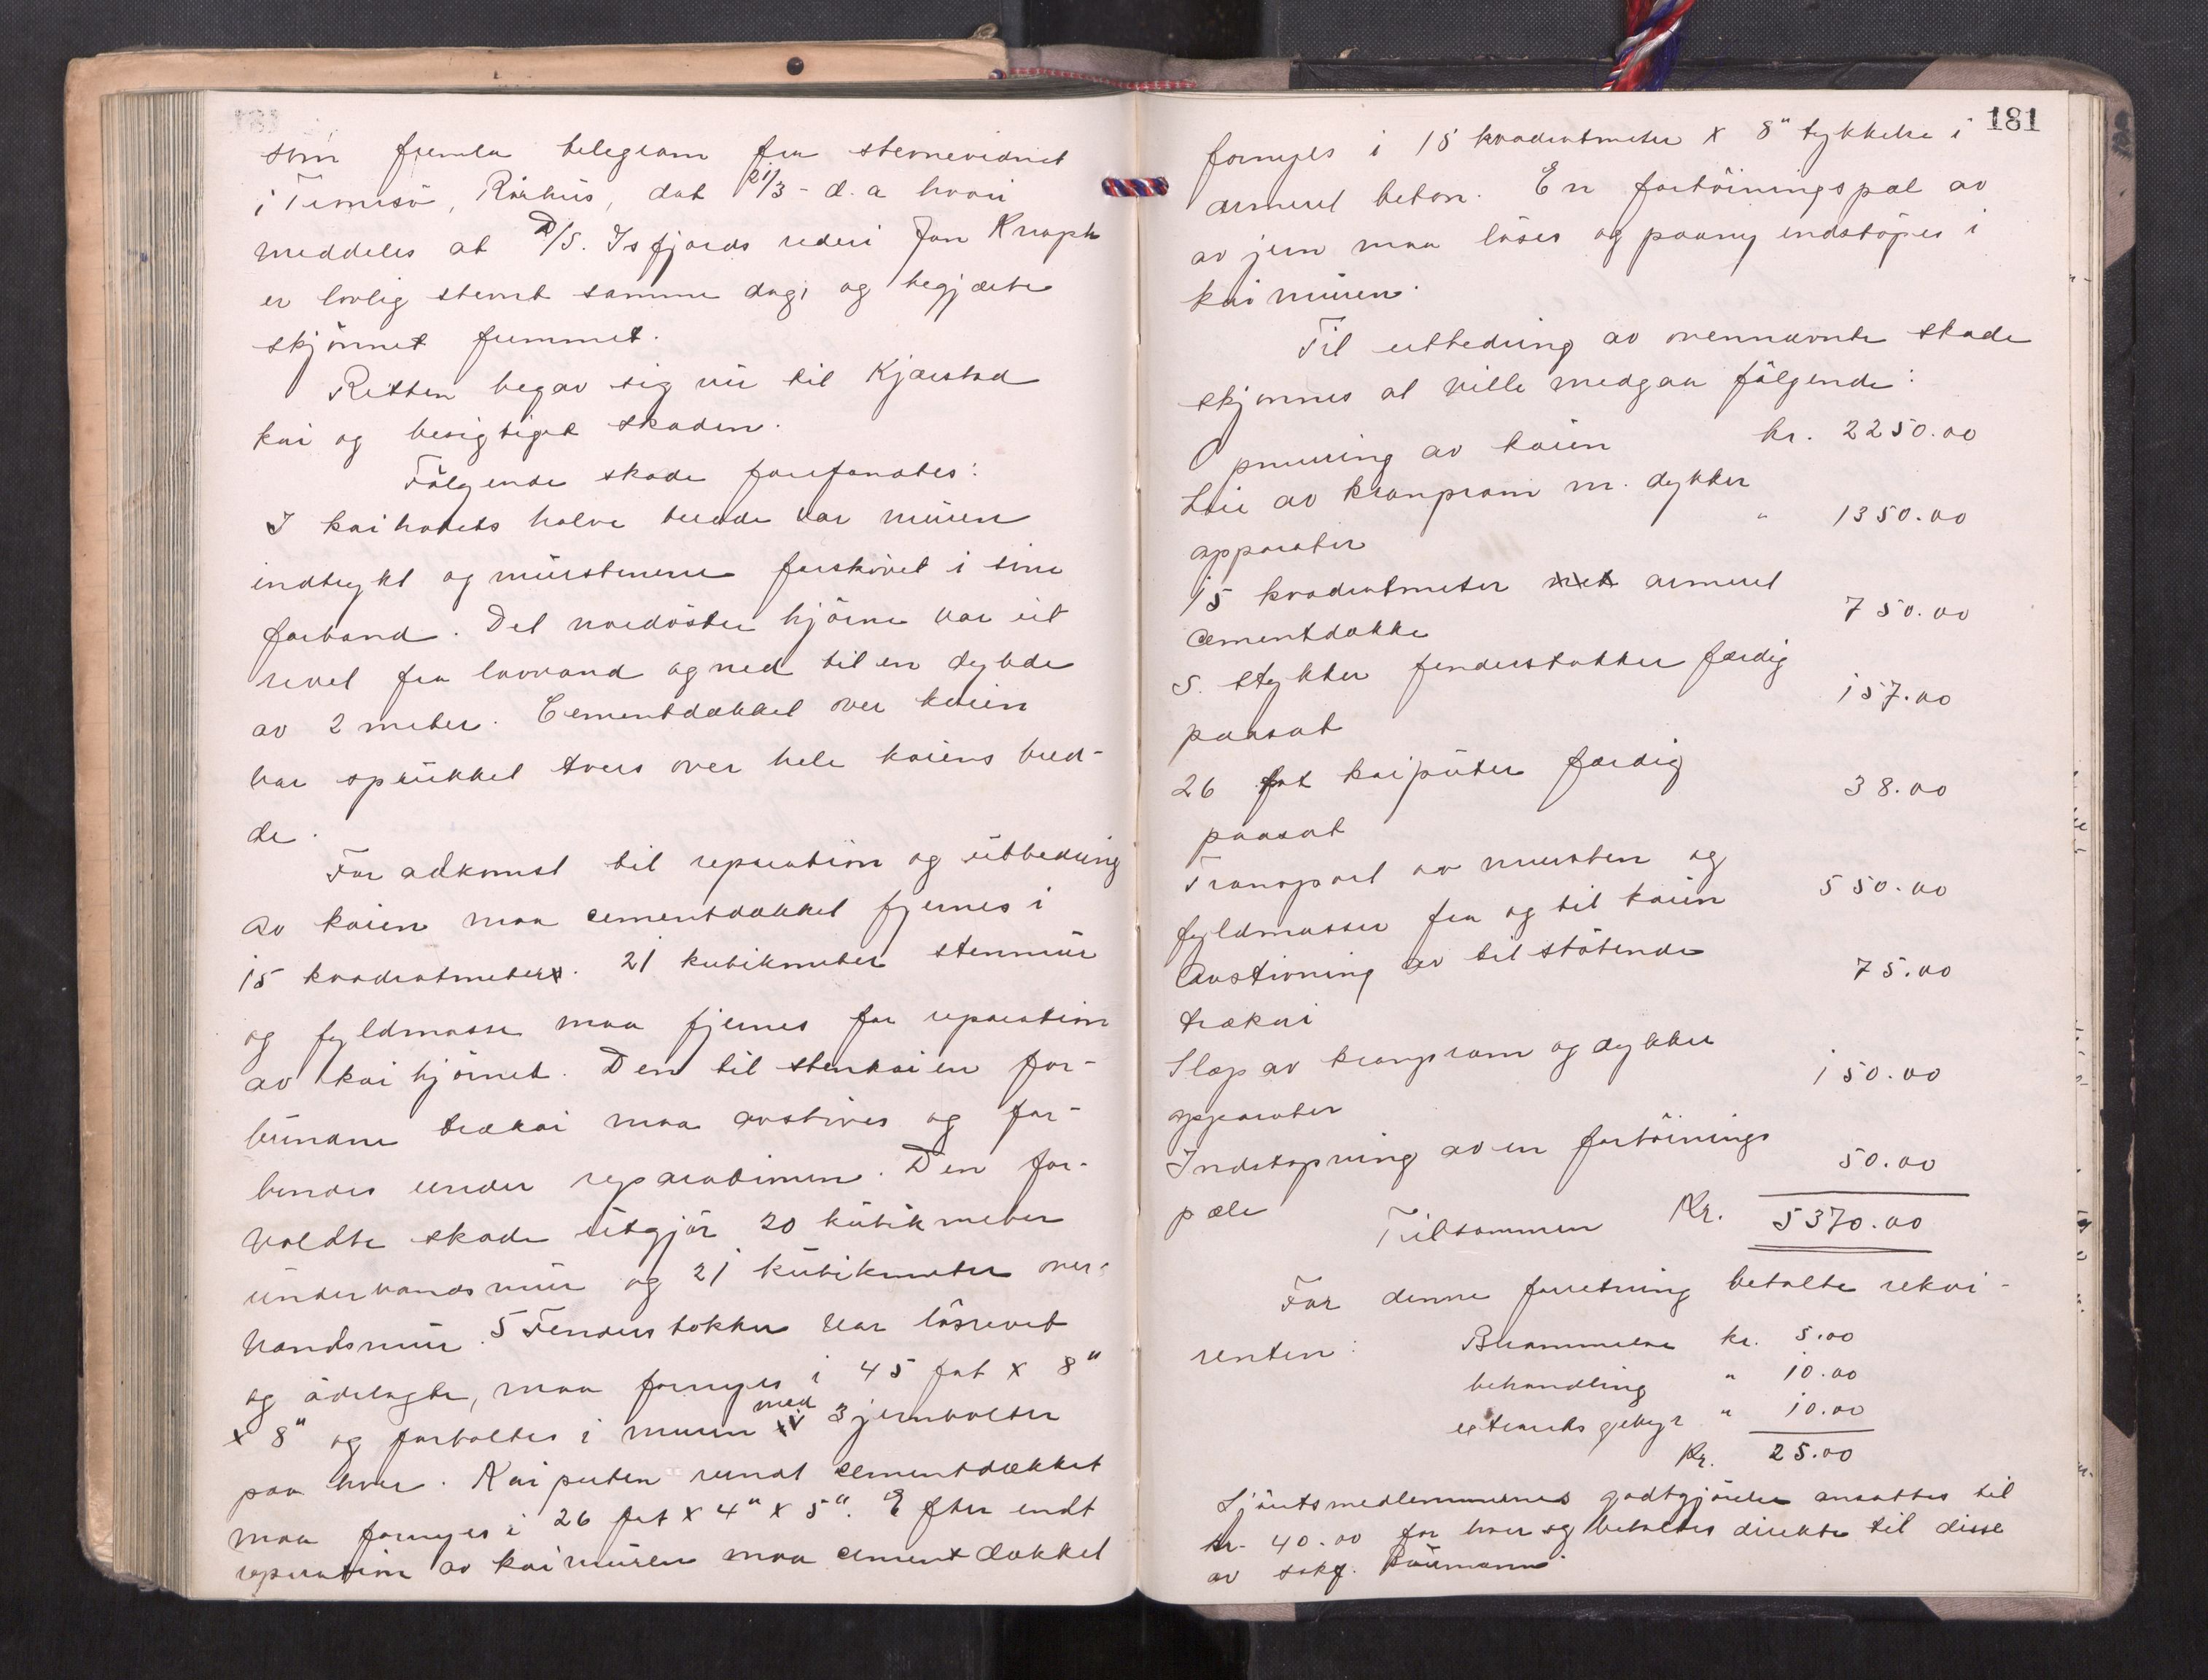 som fremla telegram fra stevnevidnet
i Tennesö, Rörhus, dat 21/3 - d.a hvori
meddeles at D/S. Isfjords rederi Jan Knaph
er lovlig stevnt samme dag, og begjærte
skjönnet fremmet.
Retten begav sig nu til Kjærstad
kai og besigtiget skaden.
Fölgende skade forefandtes:
I kaihodets halve bredde var muren
indtrykt og murstenene forskövet i sine
forband. Det nordöstre hjörne var üt
revet fra lavvand og ned til en dybde
av 2 meter. Cementdækket over kaien
var sprukket tvers over hele kaiens bred-
de.
For adkomst til reparation og ütbedring
av kaien maa cementdækket fjernes i
15 kvadratmeter. 21 kubikmeter stenmür
og fyldmasse maa fjernes for reparation
av kaihjörnet. Den til stenkaien for-
bundne trækai maa avstives og for-
bindes under reparationen. Den for-
voldte skade ütgjör 20 kubikmeter
undervandsmür og 21 kubikmeter over-
vandsmür. 5 Fenderstokker var lösrevet
og ödelagte, maa fornyes i 45 fot x 8"
x 8" og forboltes i muren med 3 jernbolter
paa hver. Kaiputen rundt cementdækket
maa fornyes i 26 fot x 4" x 5". Efter endt
reparation av kaimüren maa cementdækket
181
fornyes i 15 kvadratmeter x 8" tykkelse i
armeret beton. En fortöiningspæl av
av jern maa löses og paany indstöpes i
kaimüren.
Til utbedring av ovennævnte skade
skjönnes at ville medgaa fölgende:
Opmuring av kaien kr. 2250.00
Leie av kranpram m. dykker
apparater " 1350.00
15 kvadratmeter armeret
cementdække 750.00
5. stykker fenderstokker færdig
paasat 157.00
26 fot kaiputer færdig
paasat 38.00
Transport av mursten og
fyldmasser fra og til kaien 550.00
Avstivning av tilstötende
trækai 75.00
Slæp av kranpram og dykker
apparater 150.00
Indstöpning av en fortöinings
pæle 50.00
Tilsammen Kr. 5370.00
For denne forretning betalte rekvi-
renten: Berammelse kr. 5.00
behandling " 10.00
extrakts gebyr " 10.00
Kr. 25.00
Sjöretsmedlemmernes godtgjörelse ansattes til
kr. 40.00 for hver og betaltes direkte til disse
av sakf. Baumann.